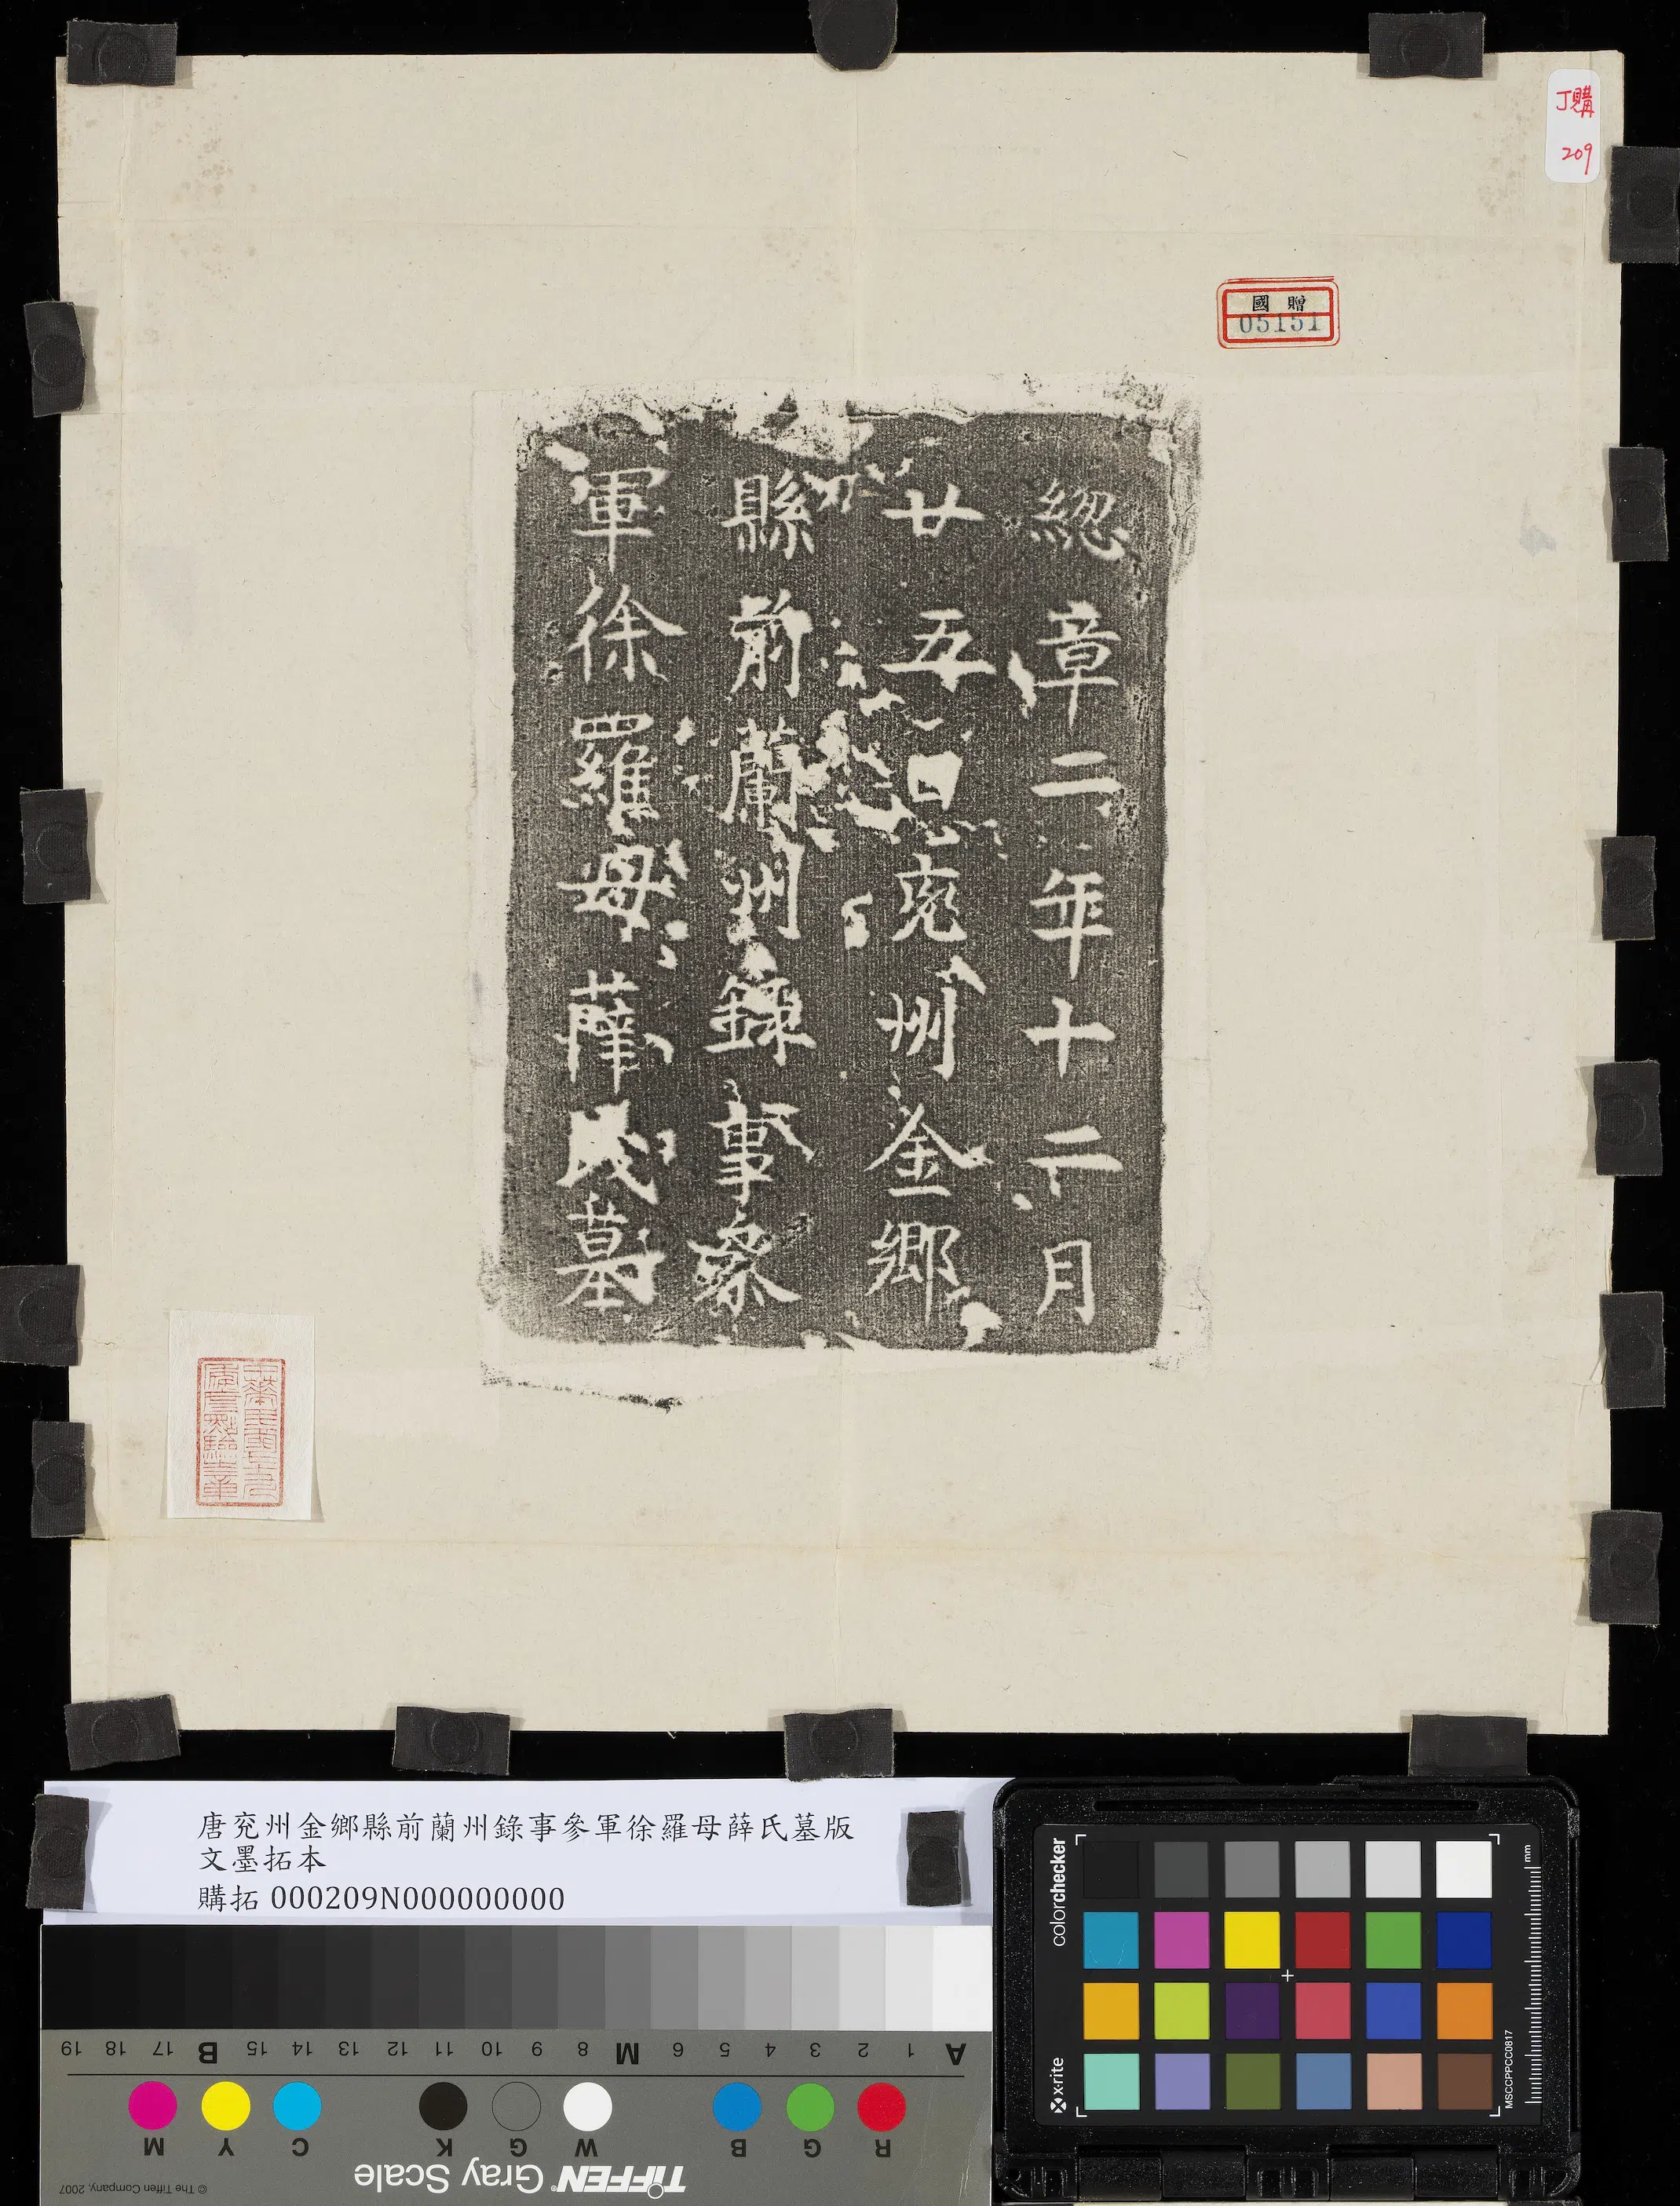 丁購
209
國贈
05151
総章二年十二月
廿五日兖州金鄉
縣前蘭州錄事叅
軍徐羅母薛氏墓
唐兗州金鄉縣前蘭州錄事參軍徐羅母薛氏墓版
文墨拓本
購拓 000209N000000000
A 1 2 3 4 5 6 M 8 9 10 11 12 13 14 15 B 17 18 19
R G B W G K C Y M
TIFFEN Gray Scale
© The Tiffen Company, 2007
colorchecker
x-rite
mm
MSCCPPCC0817